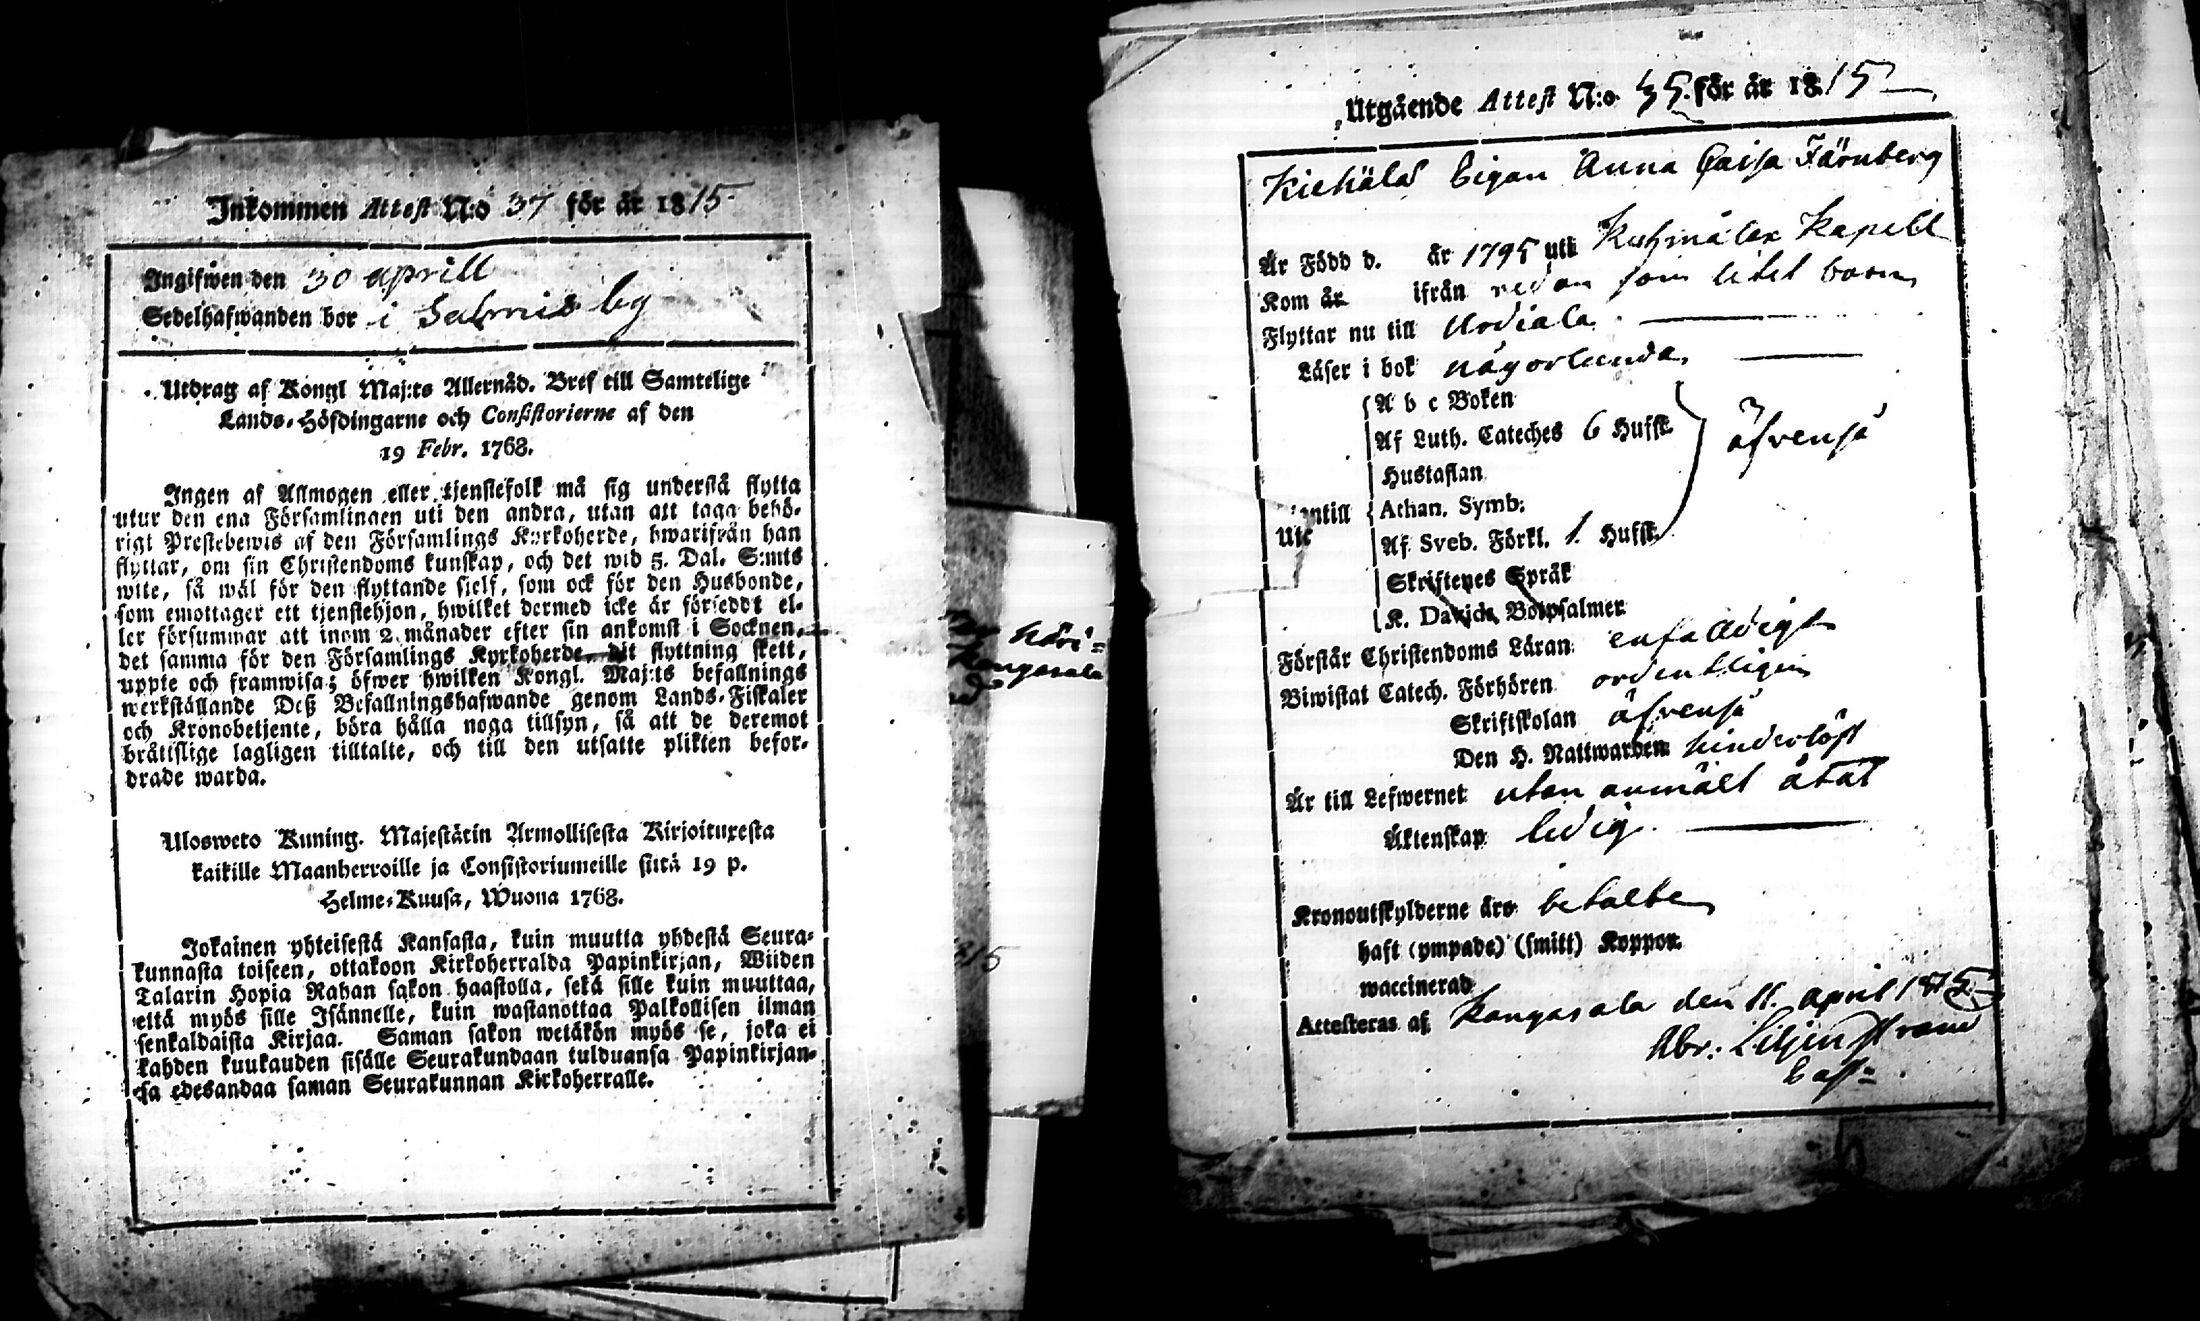 Inkommen Attest N:o 37 för år 1815
Ingifwen den 30 aprill
Sedelhafwanden bor i Salmis by
Utdrag af Kongl Maj:ts Allernåd. Bref till Samtelige
Lands-Höfdingarne och Consistorierne af den
19 Febr. 1768.
Ingen af Allmogen eller tjenstefolk må sig understå flytta
utur den ena Församlingen uti den andra, utan att taga behö-
rigt Prestebewis af den Församlings Kyrkoherde, hwarifrån han
flyttar, om sin Christendoms kunskap, och det wid 5. Dal. S:mts
wite, så wäl för den flyttande sjelf, som ock för den Husbonde,
som emottager ett tjenstehjon, hwilket dermed icke är försedt el-
ler försummar att inom 2 månader efter sin ankomst i Socknen,
det samma för den Församlings Kyrkoherde, dit flyttning skett,
uppte och framwisa; öfwer hwilken Kongl. Maj:ts befallnings
werkställande Deß Befallningshafwande genom Lands-Fiskaler
och Kronobetjente, böra hålla noga tillsyn, så att de deremot
bråttslige lagligen tilltalte, och till den utsatte plikten befor-
drade warda.
Ulosweto Kuning. Majestätin Armollisesta Kirjoituxesta
kaikille Maanherroille ja Consistoriumeille siitä 19 p.
Helme-Kuusa, Wuona 1768.
Jokainen yhteisestä Kansasta, kuin muutta yhdestä Seura-
kunnasta toiseen, ottakoon Kirkoherralda Papinkirjan, Wiiden
Talarin Hopia Rahan sakon haastolla, sekä sille kuin muuttaa,
että myös sille Isännelle, kuin wastanottaa Palkollisen ilman
senkaldaista Kirjaa. Saman sakon wetäkön myös se, joka ei
kahden kuukauden sisälle Seurakundaan tulduansa Papinkirjan-
sa edesandaa saman Seurakunnan Kirkoherralle.
Kangasala
Utgående Attest N:o 35. för år 1815
Pigan Anna Caisa Färnberg
År Född d. år 1795 uti Kuhmalax Kapell
Kom år ifrån redan som litet barn
Flyttar nu till Urdiala
Läser i bok någorlunda
A b c Boken
Af Luth. Cateches 6 Hufst.
Hustaflan
äfvenså
Athan. Symb:
Af Sveb. Förkl. 1. Hufst.
Skriftenes Språk
K. Davids Botpsalmer
Förstår Christendoms Läran enfalldigt
Biwistat Catech. Förhören ordentligen
Skriftskolan äfvenså
Den H. Nattwarden hinderlöst
Är till Lefwernet utan anmält åtal
Äktenskap ledig
Kronoutskylderne äro betalte
haft (ympade) (smitt) Koppor.
waccinerad
Attesteras af Kangasala den 11. april 1815
Abr: Liljenstrand